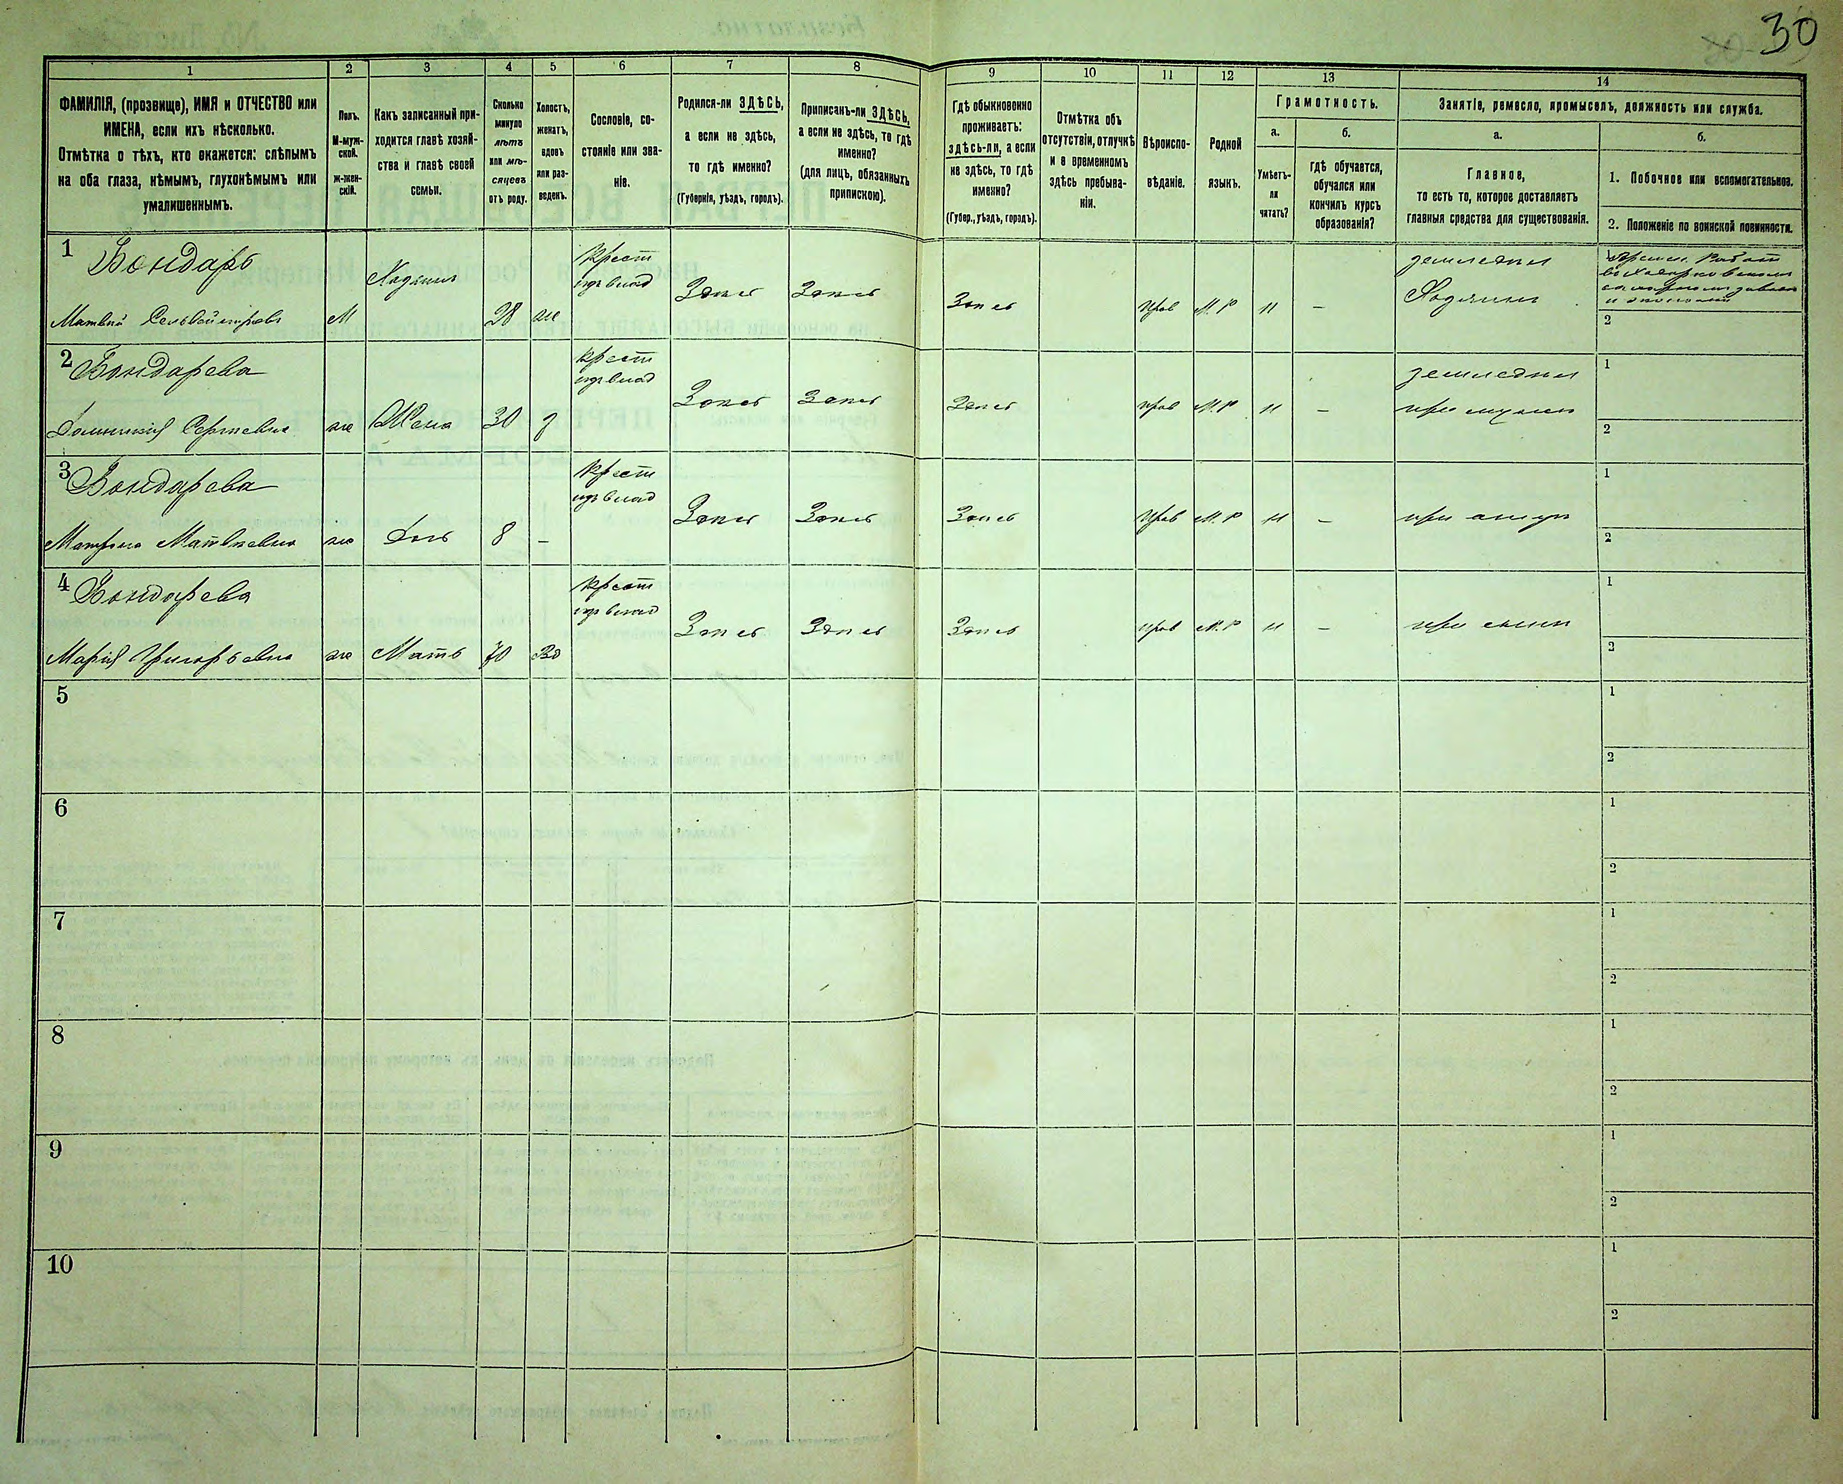 30
1 2 3 4 5 6 7 8 9 10 11 12 13 14
ФАМИЛІЯ, (прозвище), ИМЯ и ОТЧЕСТВО или
ИМЕНА, если ихъ нѣсколько.
Отмѣтка о тѣхъ, кто окажется: слѣпымъ
на оба глаза, нѣмымъ, глухонѣмымъ или
умалишеннымъ.
Полъ.
М-муж-
ской.
ж-жен-
скій.
Какъ записанный при-
ходится главѣ хозяй-
ства и главѣ своей
семьи.
Сколько
минуло
лѣтъ
или мѣ-
сяцевъ
отъ роду.
Холостъ,
женатъ,
вдовъ
или раз-
веденъ.
Сословіе, со-
стояніе или зва-
ніе.
Родился-ли ЗДѢСЬ,
а если не здѣсь,
то гдѣ именно?
(Губернія, уѣздъ, городъ).
Приписанъ-ли ЗДѢСЬ,
а если не здѣсь, то гдѣ
именно?
(для лицъ, обязанныхъ
припискою).
Гдѣ обыкновенно
проживаетъ:
здѣсь-ли, а если
не здѣсь, то гдѣ
именно?
(Губер., уѣздъ, городъ).
Отмѣтка объ
отсутствіи, отлучкѣ
и о временномъ
здѣсь пребыва-
ніи.
Вѣроиспо-
вѣданіе.
Родной
языкъ.
Грамотность.
а.
Умѣетъ-
ли
читать?
б.
Гдѣ обучается,
обучался или
кончилъ курсъ
образованія?
Занятіе, ремесло, промыселъ, должность или служба.
а.
Главное,
то есть то, которое доставляетъ
главныя средства для существованія.
б.
1. Побочное или вспомогательное.
2. Положеніе по воинской повинности.
1 Бондарь
Матвѣй
М
Хозяинъ
28
же
крест
изъ влад
Здѣсь
Здѣсь
Здѣсь
прав
М.Р
н
–
Хозяинъ
2
2 Бондарева
Сергѣевна
же
Жена
30
з
крест
изъ влад
Здѣсь
Здѣсь
Здѣсь
прав
М.Р
н
–
при мужѣ
1
2
3 Бондарева
Матрона Матвѣевна
же
Дочь
8
–
крест
изъ влад
Здѣсь
Здѣсь
Здѣсь
прав
М.Р
н
–
при отцѣ
1
2
4 Бондарева
Марія Григорьевна
же
Мать
70
Вд
крест
изъ влад
Здѣсь
Здѣсь
Здѣсь
прав
М.Р
н
–
при сынѣ
1
2
5
1
2
6
1
2
7
1
2
8
1
2
9
1
2
10
1
2